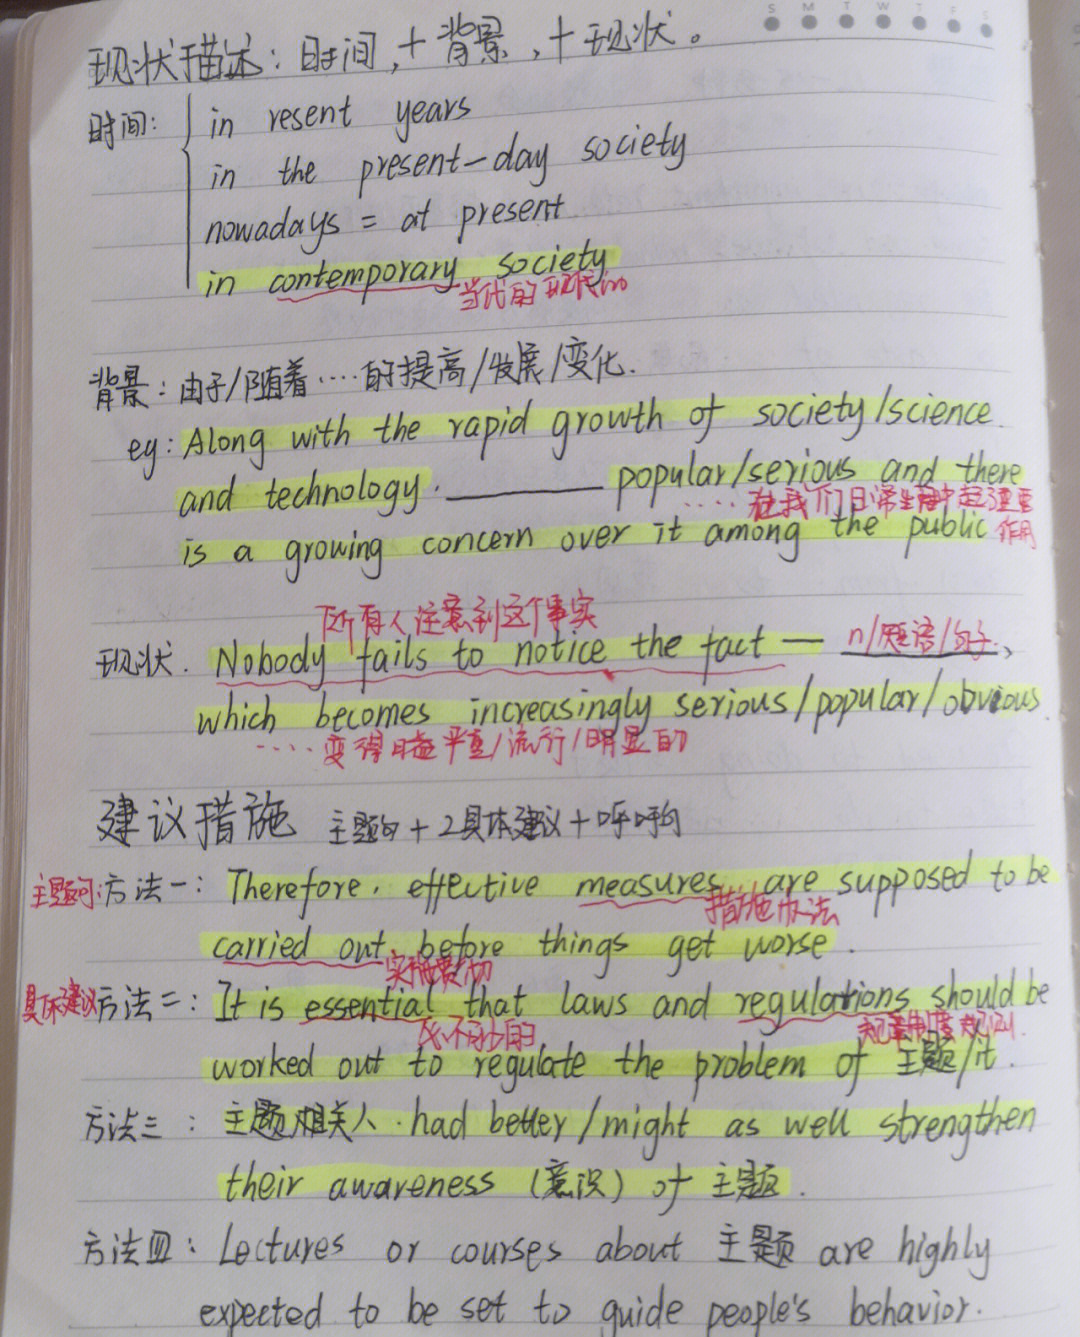 S M T W T F S
现状描述：时间，+背景，+现状。
时间： in resent years
in the present-day society
nowadays = at present
in contemporary society
当代的 现代的
背景：由于/随着····的提高/发展/变化.
eg: Along with the rapid growth of society/science
and technology. ______ popular/serious and there
····在我们日常生活中起重要
is a growing concern over it among the public
作用
所有人注意到这个事实
现状. Nobody fails to notice the fact — n/短语/句子,
which becomes increasingly serious/popular/obvious.
····变得日益严重/流行/明显的
建议措施 主题句+2具体建议+呼吁句
主题句: 方法一: Therefore, effective measures are supposed to be
措施办法
carried out before things get worse.
实施贯彻
具体建议 方法二: It is essential that laws and regulations should be
必不可少的 规章制度 规则.
worked out to regulate the problem of 主题/it.
方法三: 主题相关人 had better/might as well strengthen
their awareness (意识) of 主题.
方法四: Lectures or courses about 主题 are highly
expected to be set to guide people's behavior.